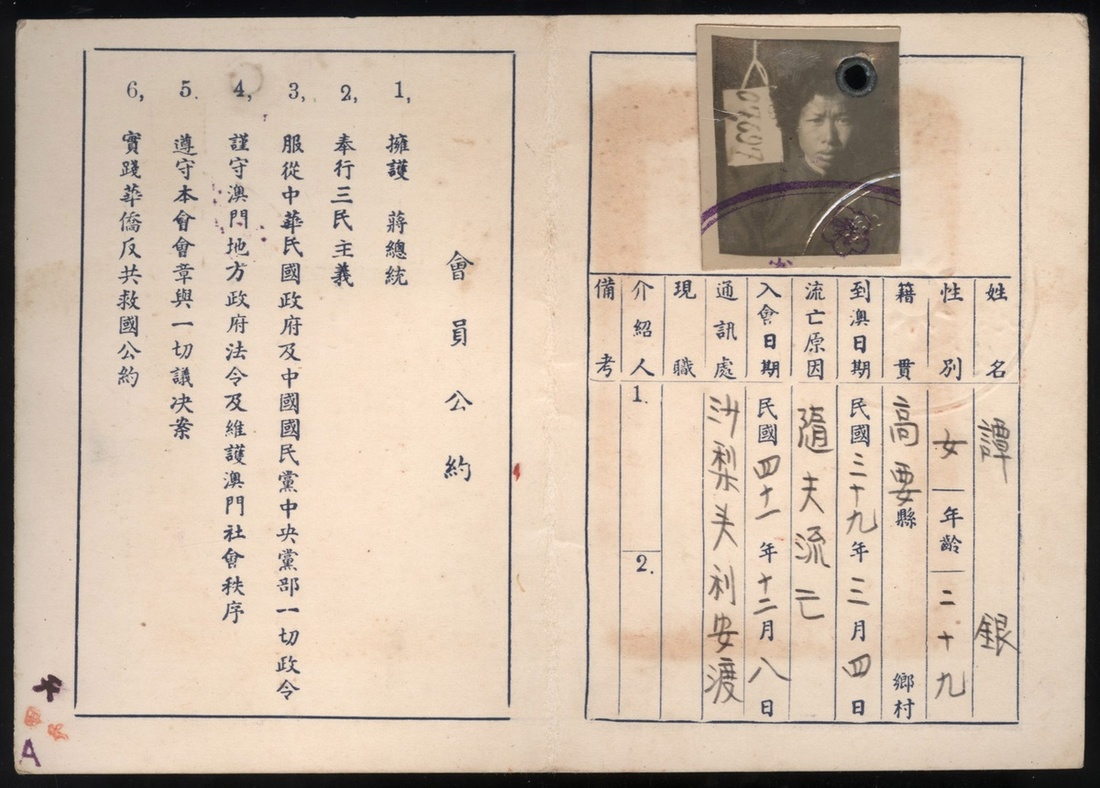 07607
姓名 譚銀
性別 女 年齡 二十九
籍貫 高要縣 鄉村
到澳日期 民國三十九年三月四日
流亡原因 隨夫流亡
入會日期 民國四十一年十二月八日
通訊處 沙梨头利安渡
現職
介紹人 1. 2.
備考
會員公約
1, 擁護 蔣總統
2, 奉行三民主義
3, 服從中華民國政府及中國國民黨中央黨部一切政令
4, 謹守澳門地方政府法令及維護澳門社會秩序
5. 遵守本會會章與一切議決案
6, 實踐華僑反共救國公約
A